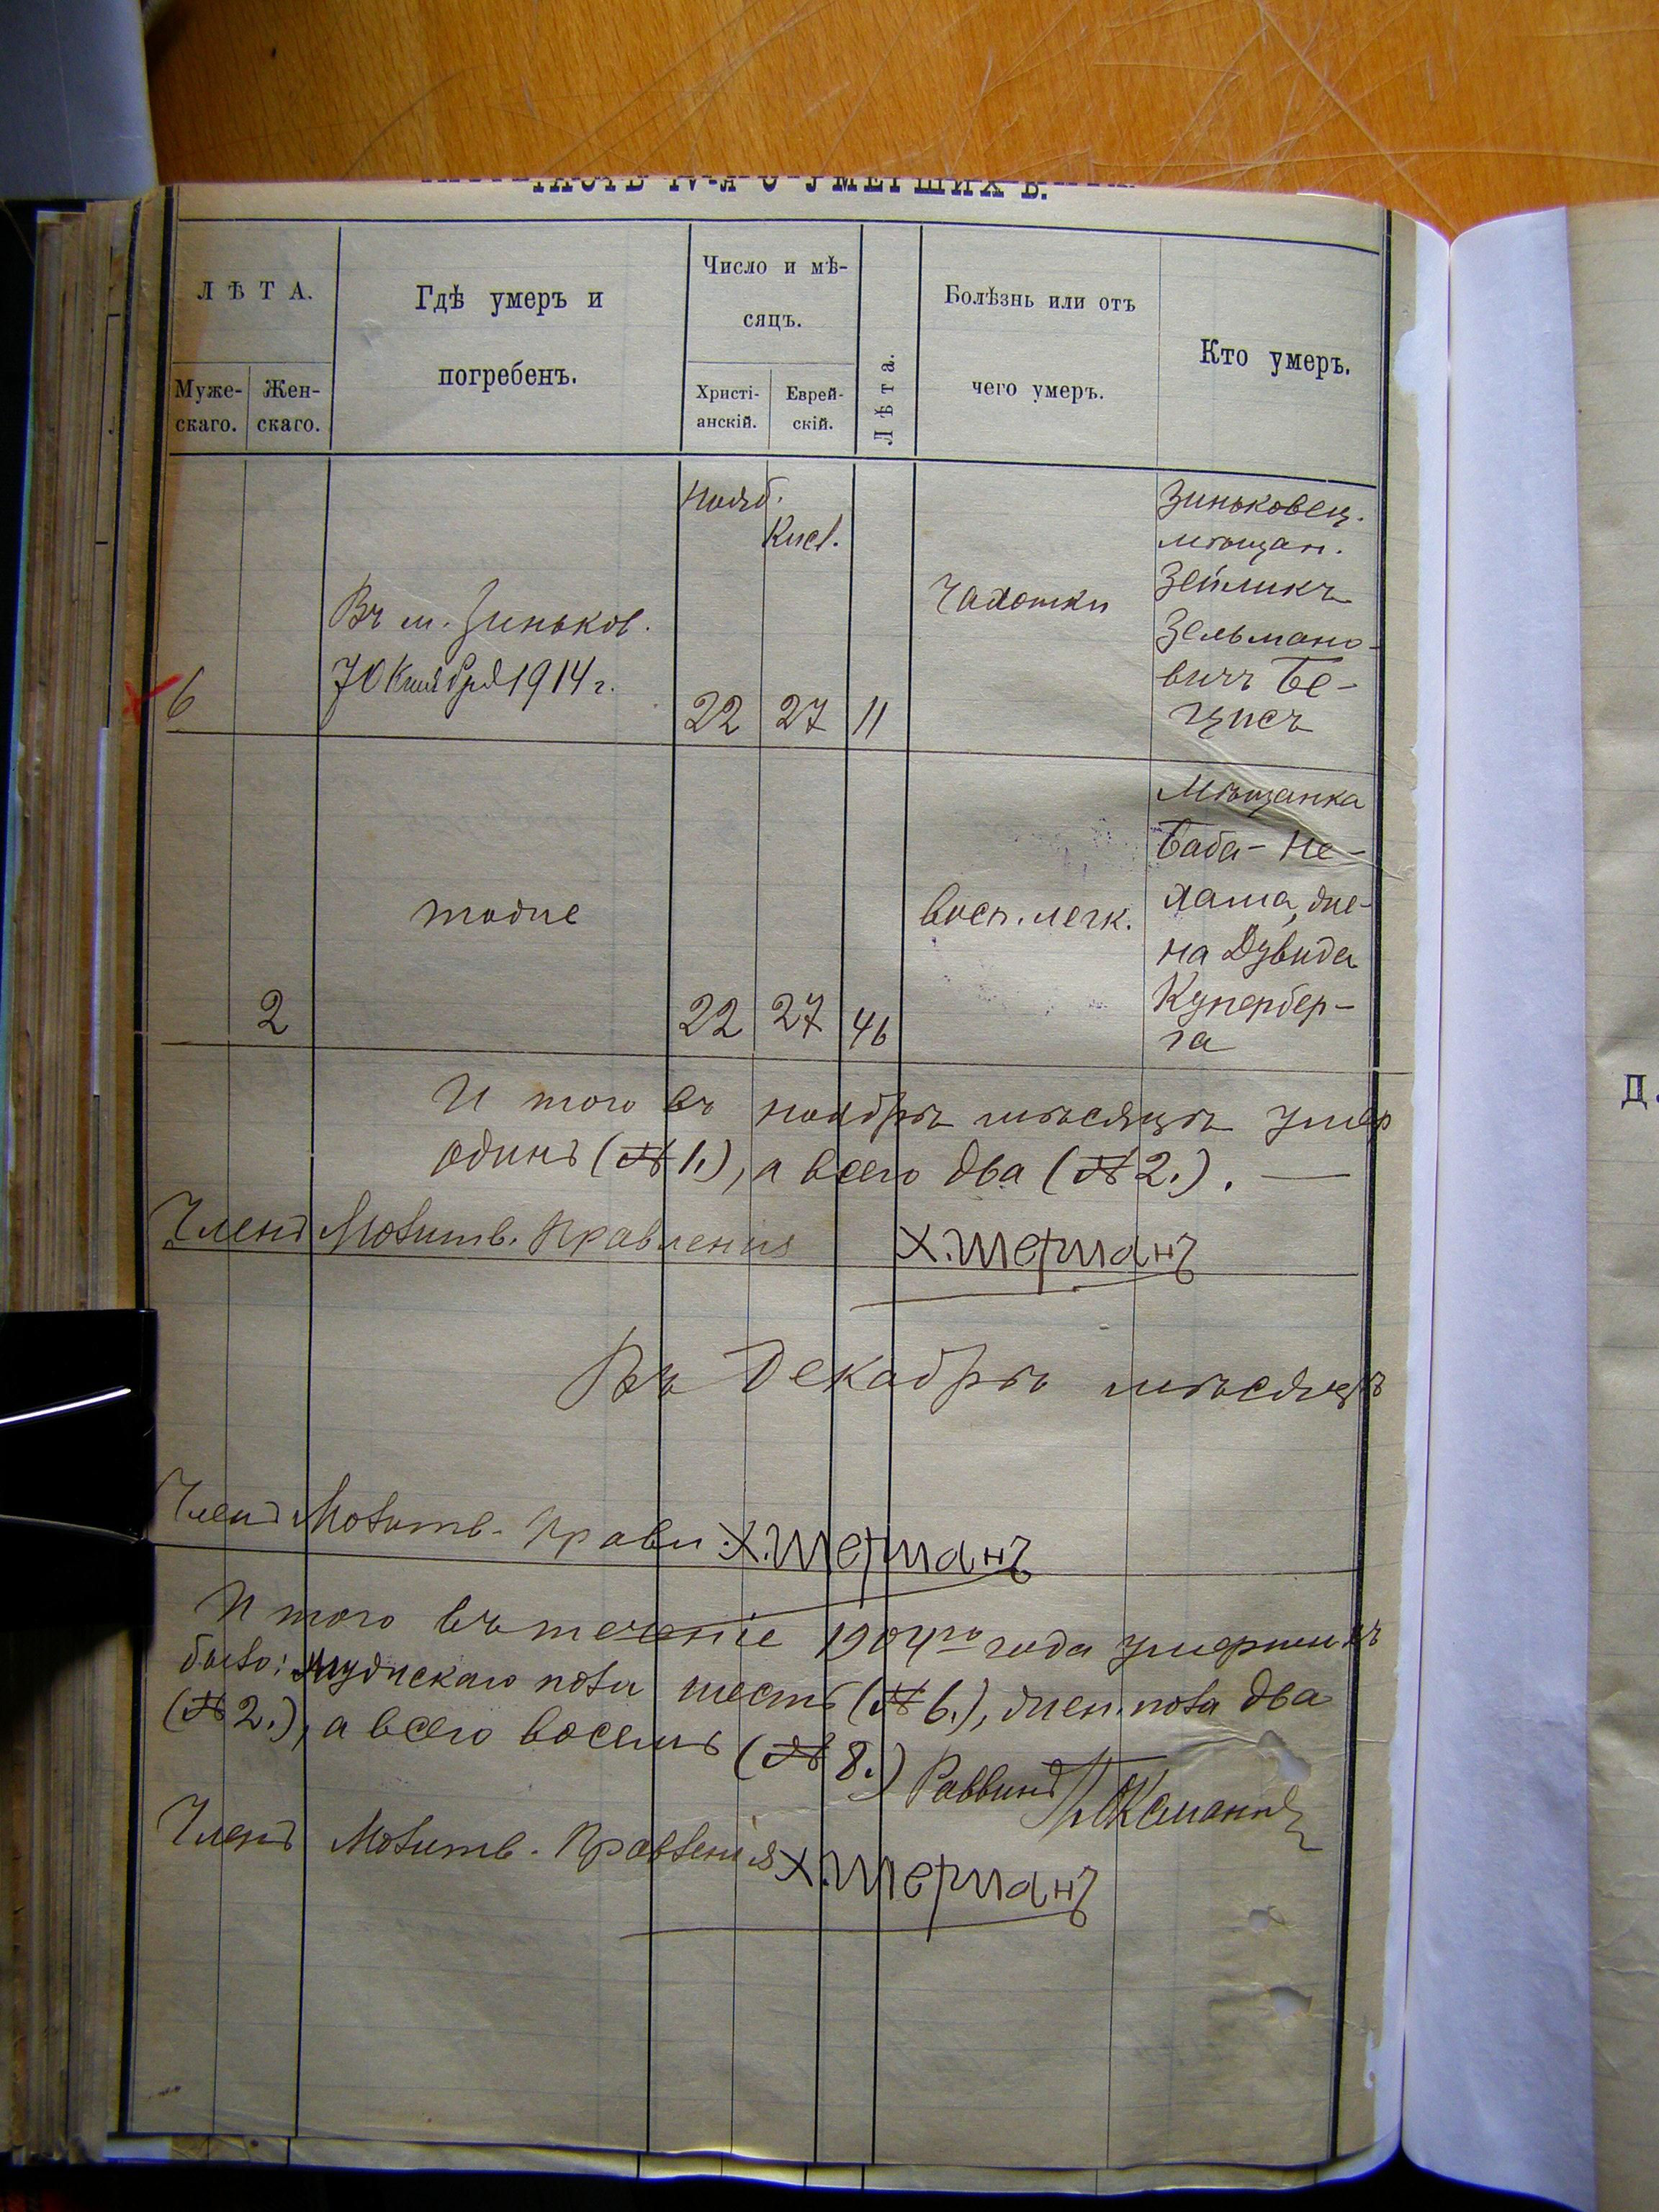 ЧАСТЬ IV-Я О УМЕРШИХЪ.
ЛѢТА.
Муже-
скаго.
Жен-
скаго.
Гдѣ умеръ и
погребенъ.
Число и мѣ-
сяцъ.
Христі-
анскій.
Еврей-
скій.
Лѣта.
Болѣзнь или отъ
чего умеръ.
Кто умеръ.
6
Въ м. Зиньков.
7 Октября 1914 г.
Нояб.
22
Кисл.
27
11
Чахотки
Зиньковец.
мѣщан.
Зейликъ
Зельмано-
вичъ Бе-
цисъ
2
тоже
22
27
46
восп. легк.
Мѣщанка
Баба-Не-
хама, же-
на Дувида
Купербер-
га
И того въ ноябрѣ мѣсяцѣ умер
одинъ (№ 1.), а всего два (№ 2.). —
Членъ Молитв. Правленія Х. Шерманъ
Въ Декабрѣ мѣсяцѣ
Членъ Молитв. Правл. Х. Шерманъ
И того въ теченіе 1904го года умершихъ
было: мужскаго пола шесть (№ 6.), жен. пола два
(№ 2.), а всего восемь (№ 8.) Раввинъ
Членъ Молитв. Правленія Х. Шерманъ
Д.